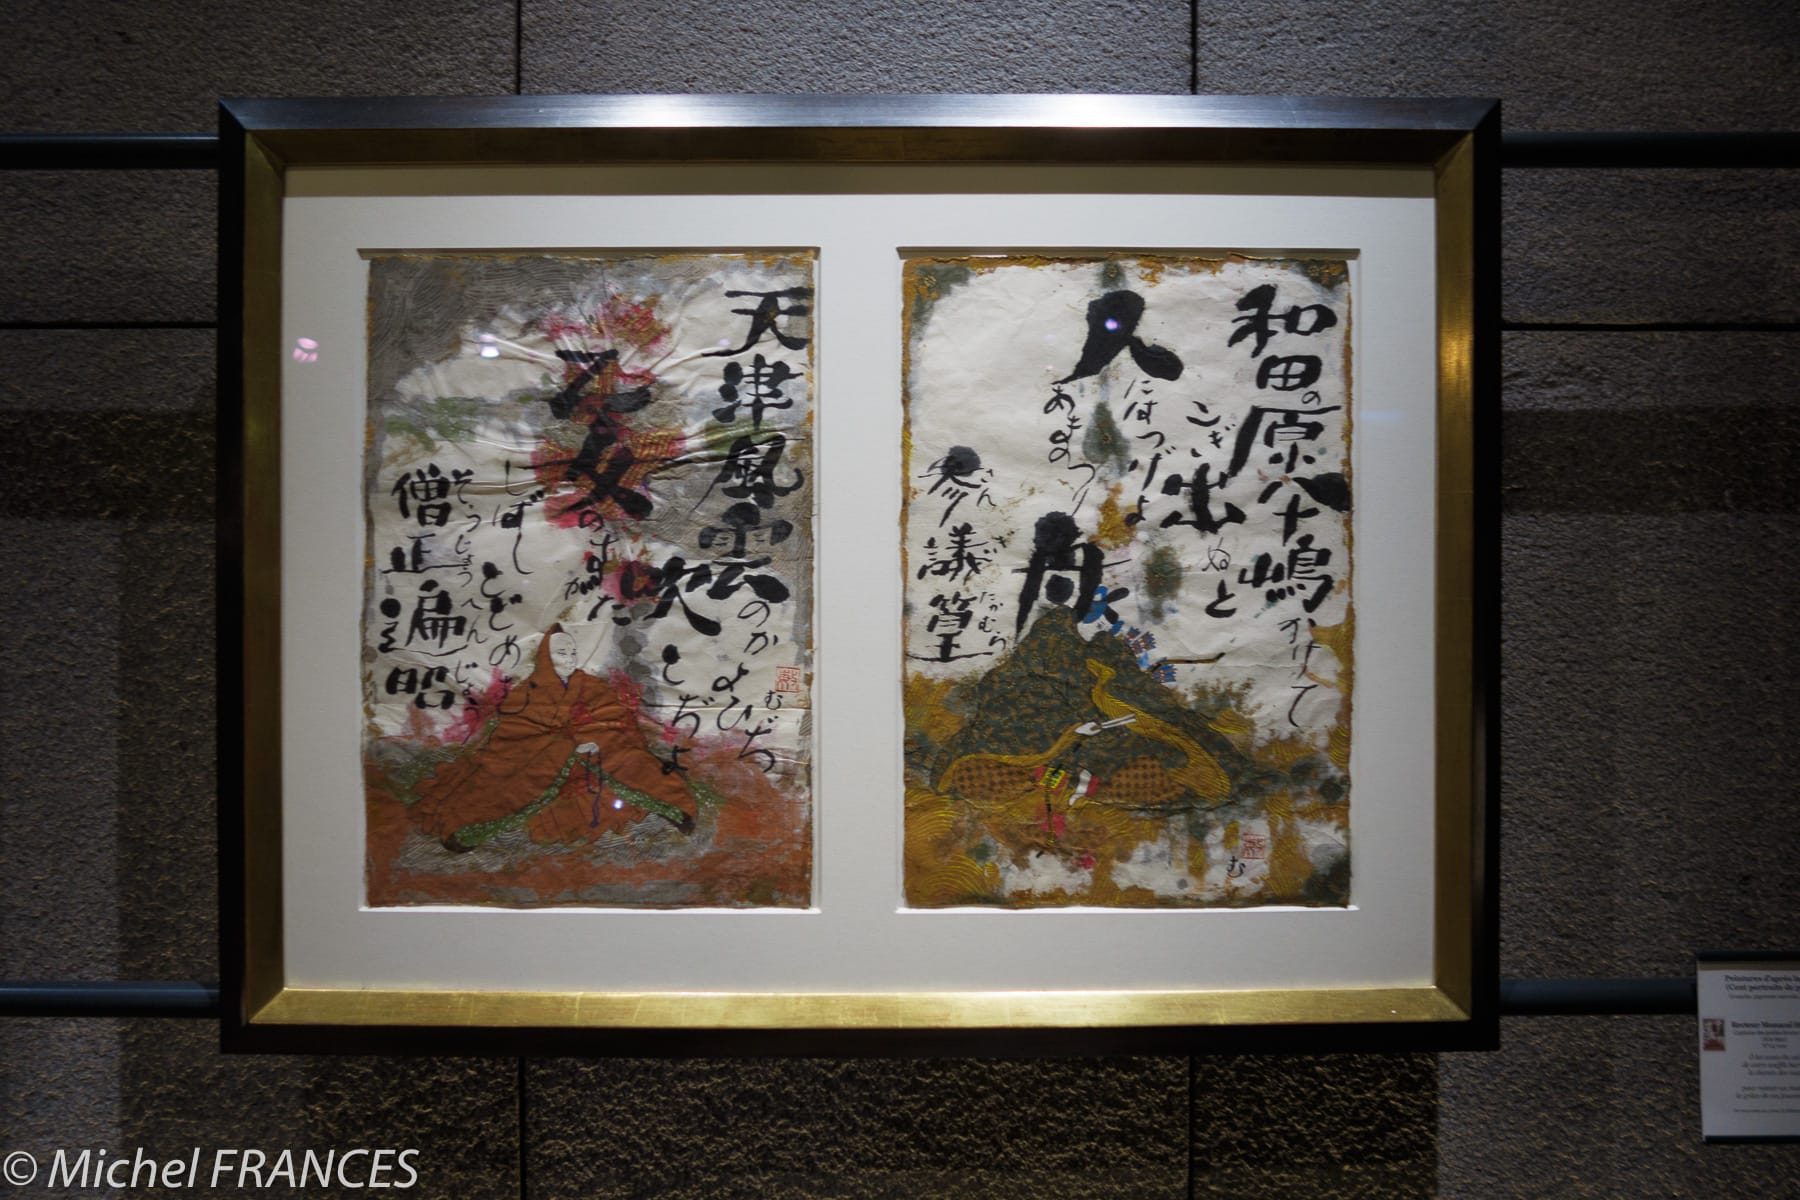 和田の原八十嶋かけて
こぎ出ぬと
人にはつげよ
あまのつり舟
さんぎたかむら
参議篁
む
天津風雲のかよひぢ
む
吹とぢよ
乙女のすがた
しばしとどめむ
そうじょうへんじょう
僧正遍昭
Peintures d'après
(Cent portraits de
© Michel FRANCES